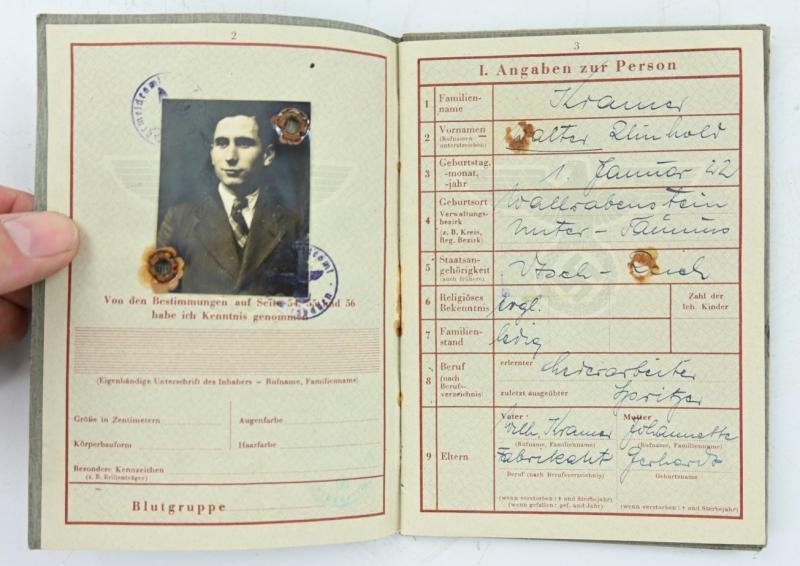 2
Von den Bestimmungen auf Seite 54, 55 und 56
habe ich Kenntnis genommen
(Eigenhändige Unterschrift des Inhabers – Rufname, Familienname)
Größe in Zentimetern
Augenfarbe
Körperbauform
Haarfarbe
Besondere Kennzeichen
(z. B. Brillenträger)
Blutgruppe
3
I. Angaben zur Person
1 Familien-
name
Kramer
2 Vornamen
(Rufnamen
unterstreichen)
Walter Reinhold
3 Geburtstag,
-monat,
-jahr
1. Januar 22
4 Geburtsort
Verwaltungs-
bezirk
(z. B. Kreis,
Reg. Bezirk)
Wallrabenstein
Unter-Taunus
5 Staatsan-
gehörigkeit
(auch frühere)
6 Religiöses
Bekenntnis
Evgl.
Zahl der
leb. Kinder
7 Familien-
stand
ledig
8 Beruf
(nach
Berufs-
verzeichnis)
erlernter
Lederarbeiter
zuletzt ausgeübter
Spritzer
9 Eltern
Vater
Wilh. Kramer
(Rufname, Familienname)
Fabrikant
Beruf (nach Berufsverzeichnis)
(wenn verstorben: † und Sterbejahr)
(wenn gefallen: gef. und Jahr)
Mutter
Johannette
(Rufname, Familienname)
Gerhardt
Geburtsname
(wenn verstorben: † und Sterbejahr)